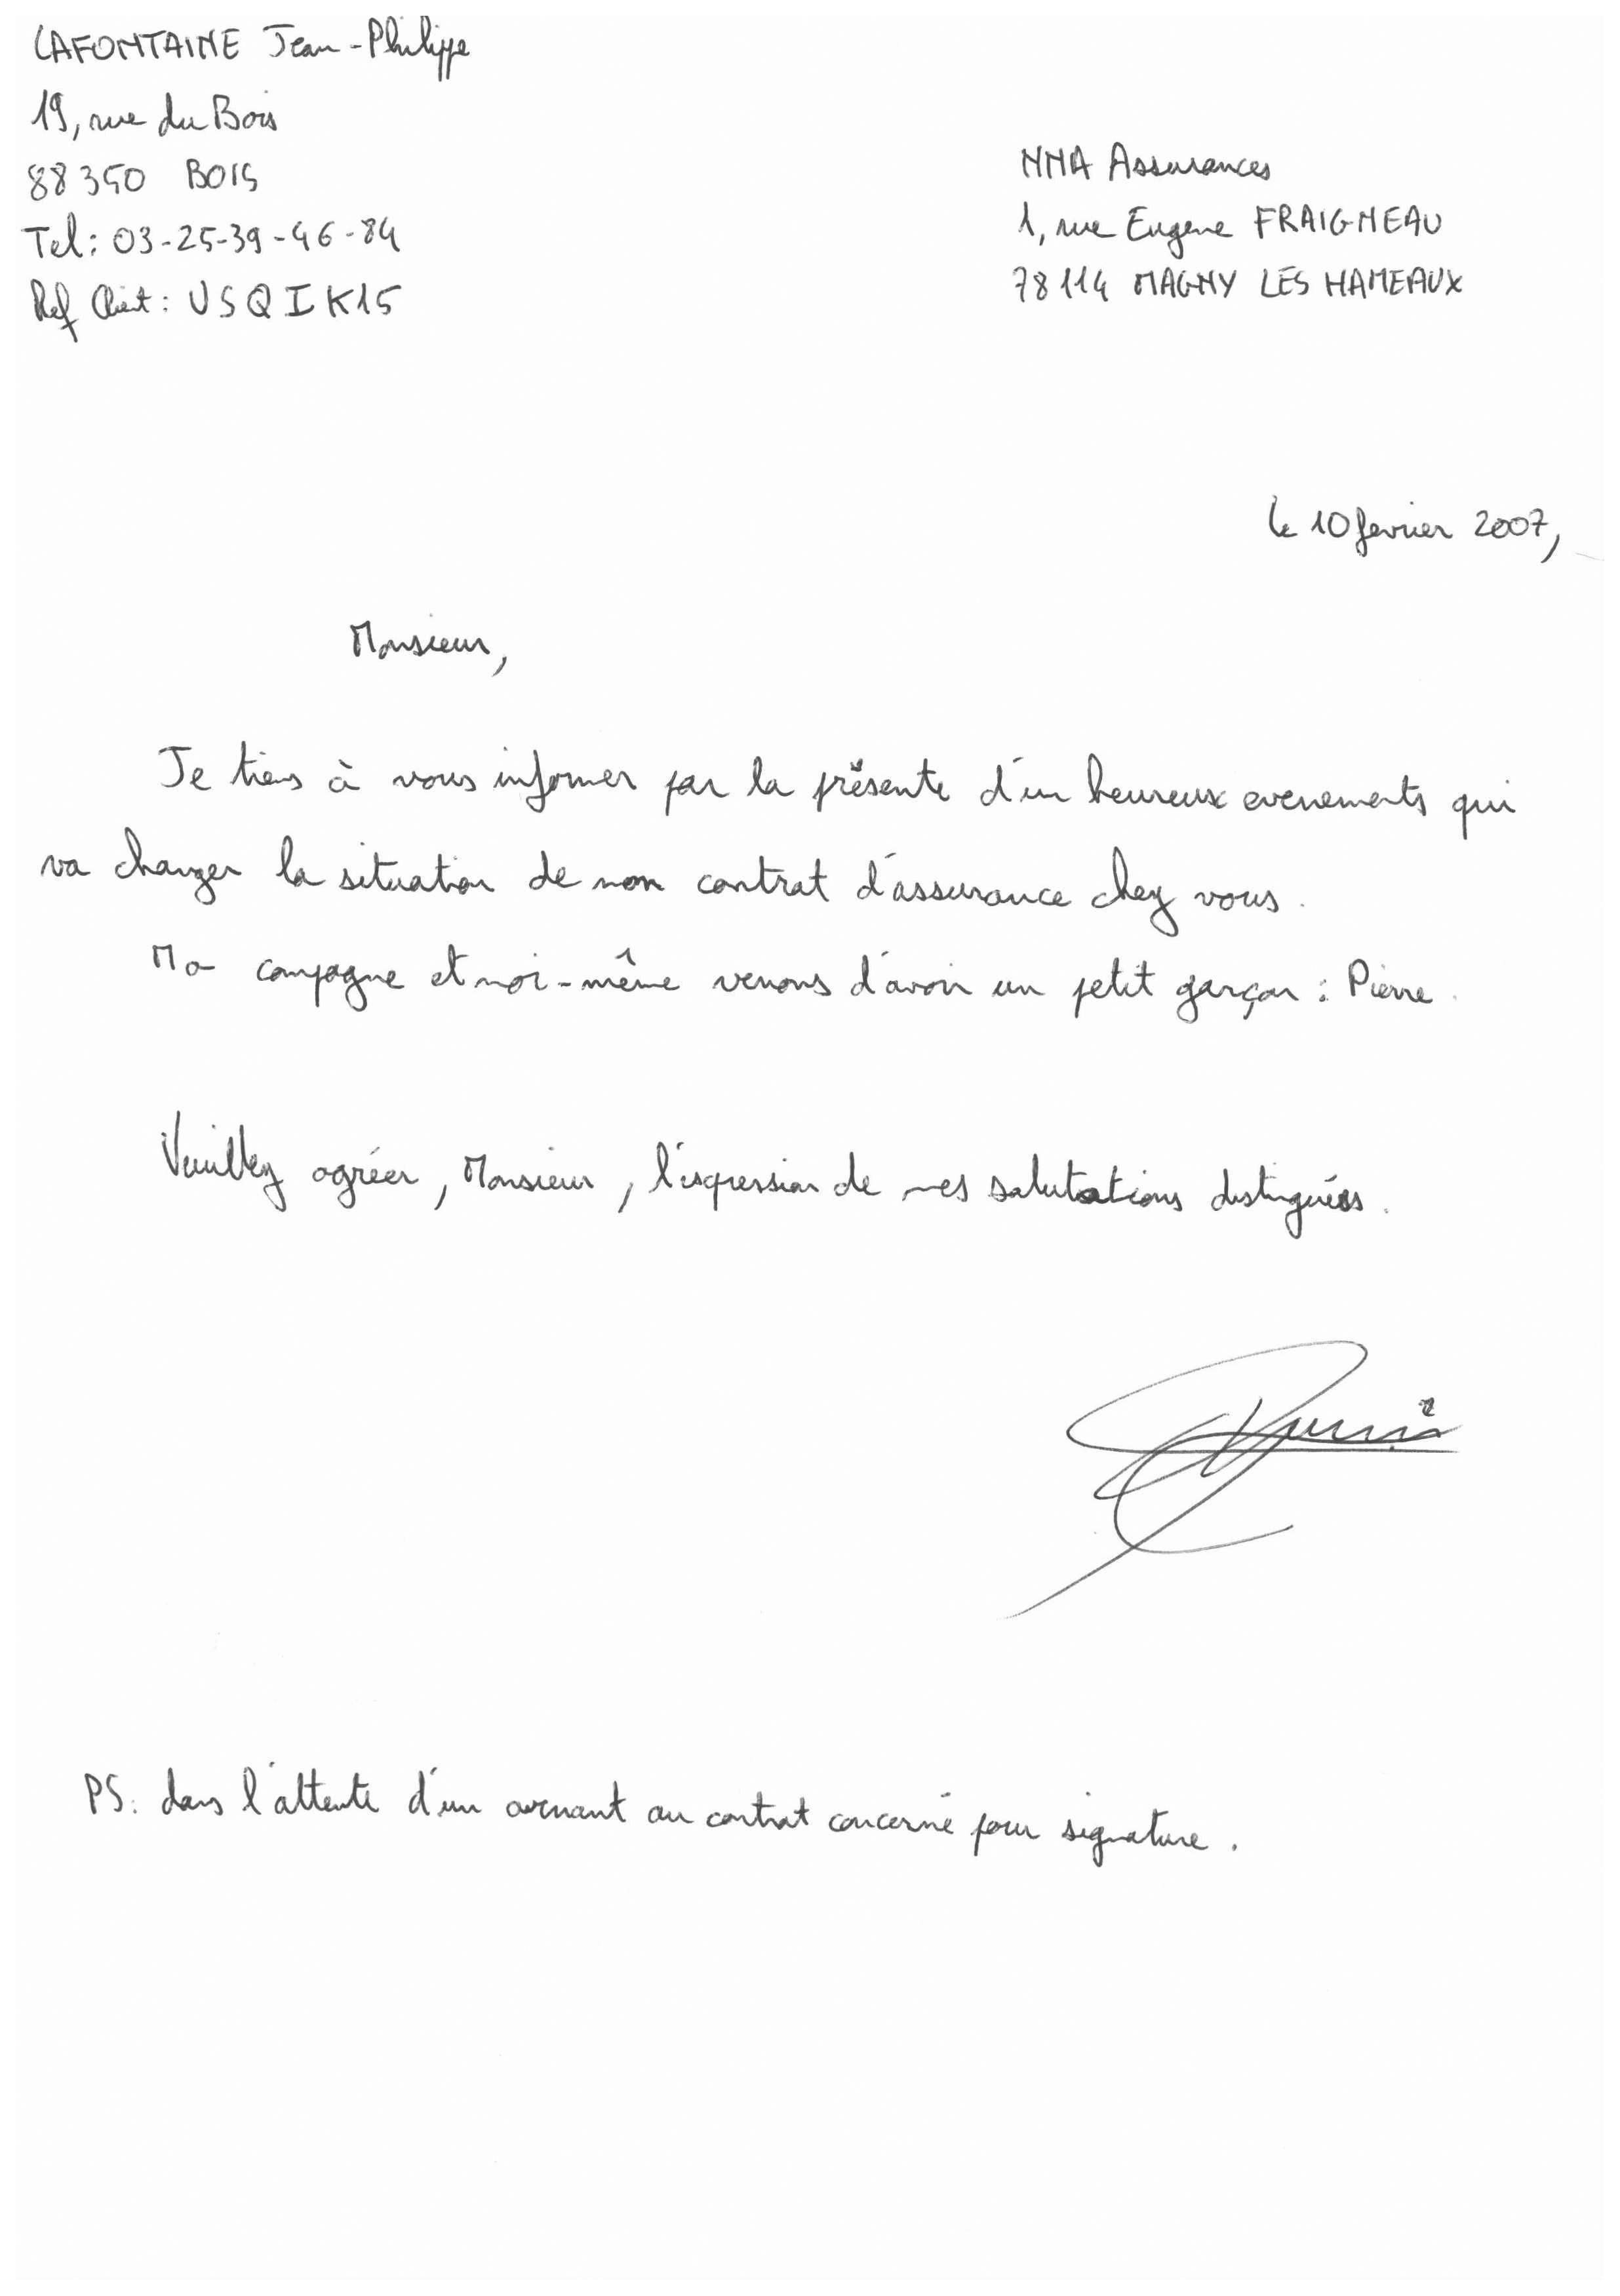 LAFONTAINE Jean-Philippe
19, rue du Bois
88350 BOIS
Tel: 03-25-39-46-84
Ref Client: USQIK15
MMA Assurances
1, rue Eugene FRAIGNEAU
78114 MAGNY LES HAMEAUX
le 10 fevrier 2007,
Monsieur,
Je tiens à vous informer par la présente d'un heureux evenements qui
va changer la situation de mon contrat d'assurance chez vous.
Ma compagne et moi-même venons d'avoir un petit garçon : Pierre.
Veuillez agréer, Monsieur, l'expression de mes salutations distinguées.
PS: dans l'attente d'un avenant au contrat concerné pour signature.